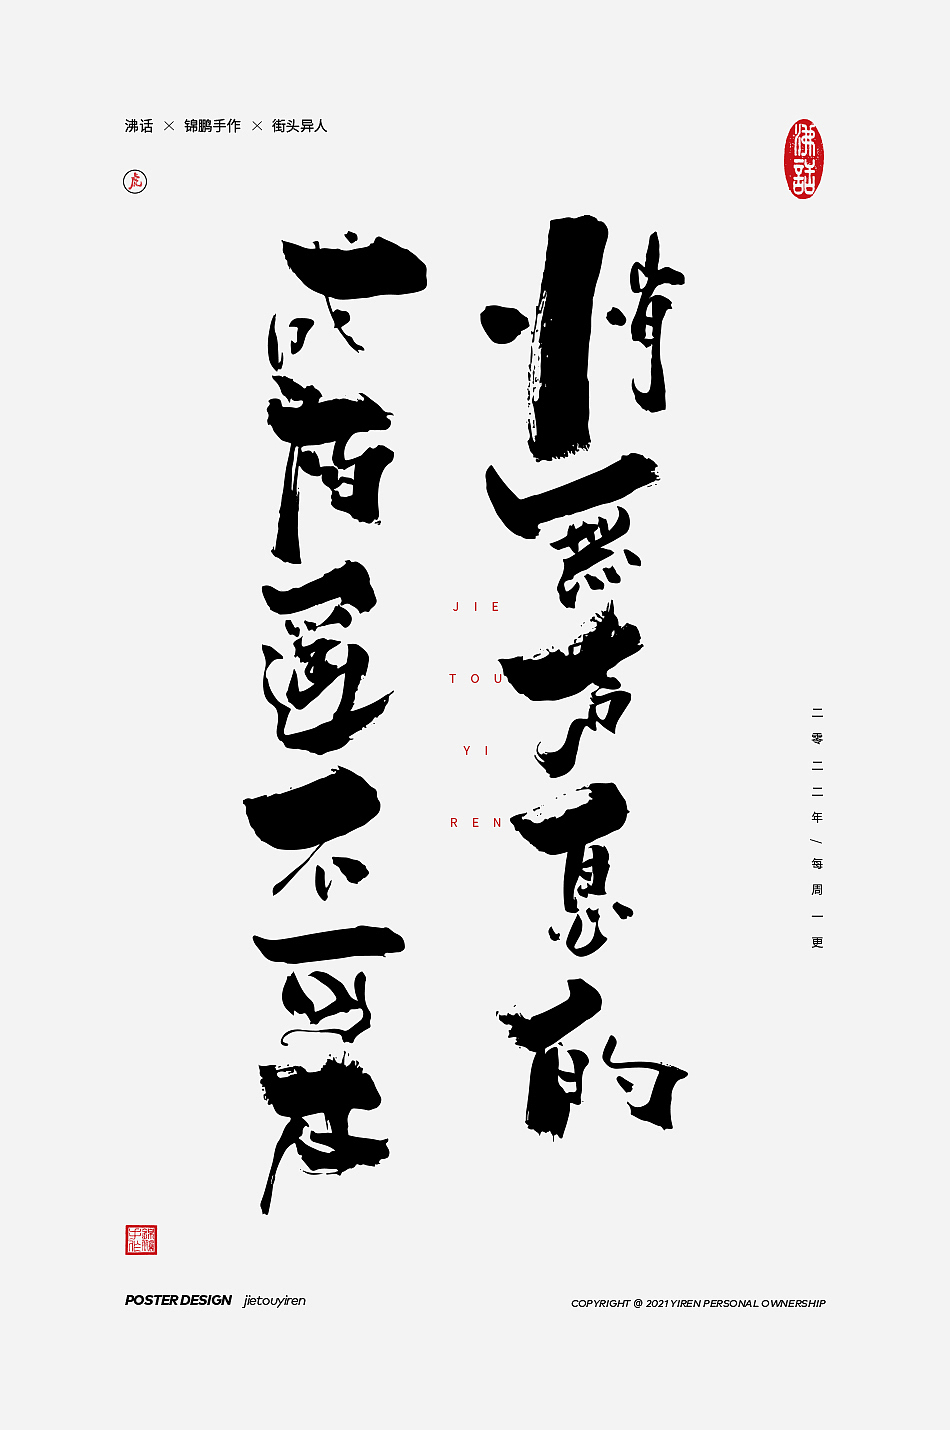 沸话 × 锦鹏手作 × 街头异人
虎
沸話
悄無声息的
不
JIE
TOU
YI
REN
二零二二年/每周一更
POSTER DESIGN jietouyiren
COPYRIGHT @ 2021 YIREN PERSONAL OWNERSHIP